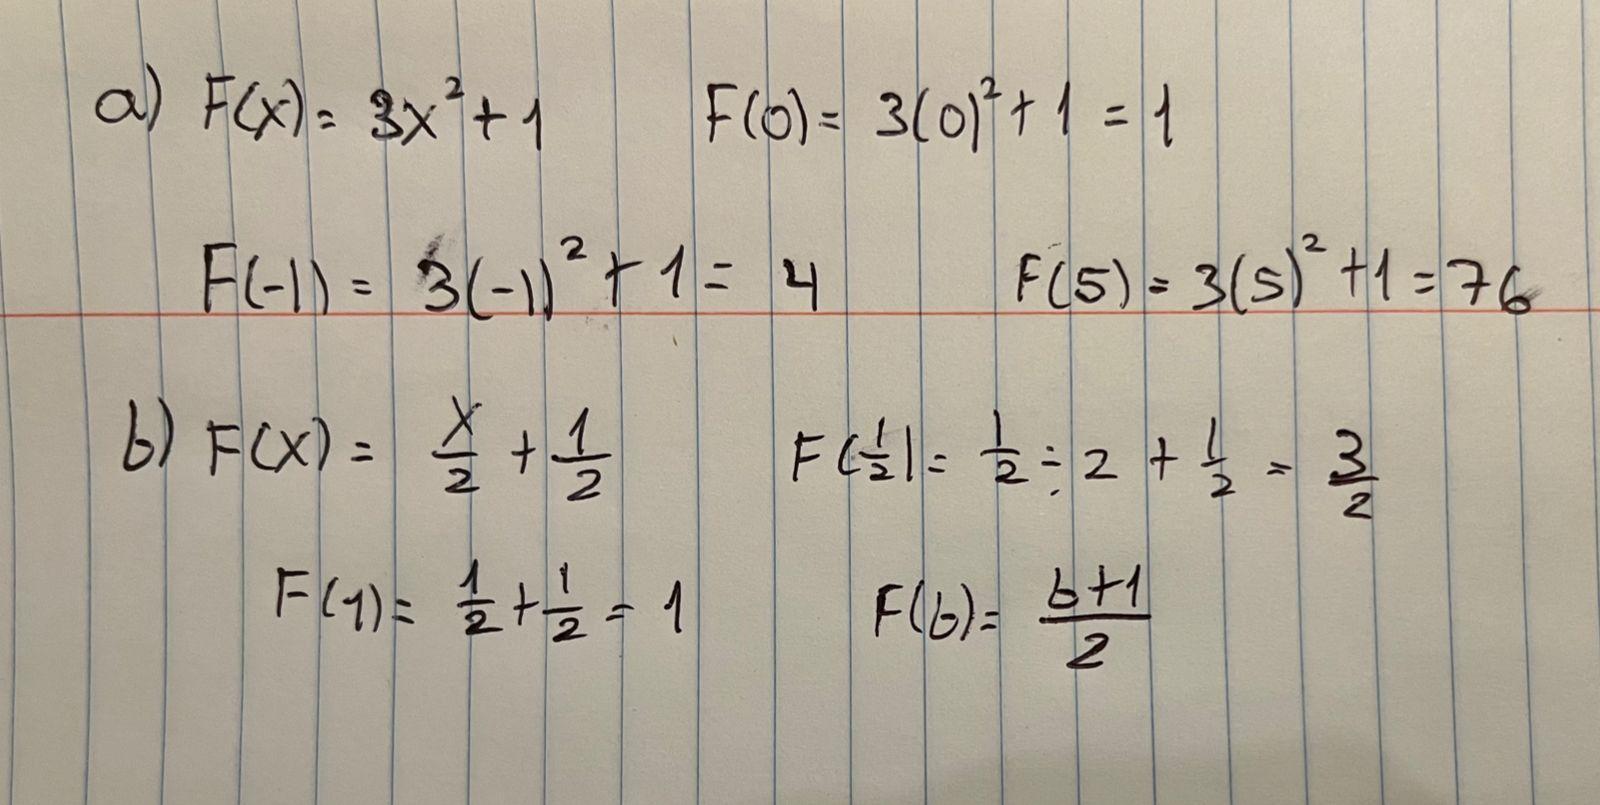 a) F(x) = 3x² + 1 F(0) = 3(0)² + 1 = 1
F(-1) = 3(-1)² + 1 = 4 F(5) = 3(5)² + 1 = 76
b) F(x) = x/2 + 1/2 F(1/2) = 1/2 ÷ 2 + 1/2 = 3/2
F(1) = 1/2 + 1/2 = 1 F(b) = (b+1)/2